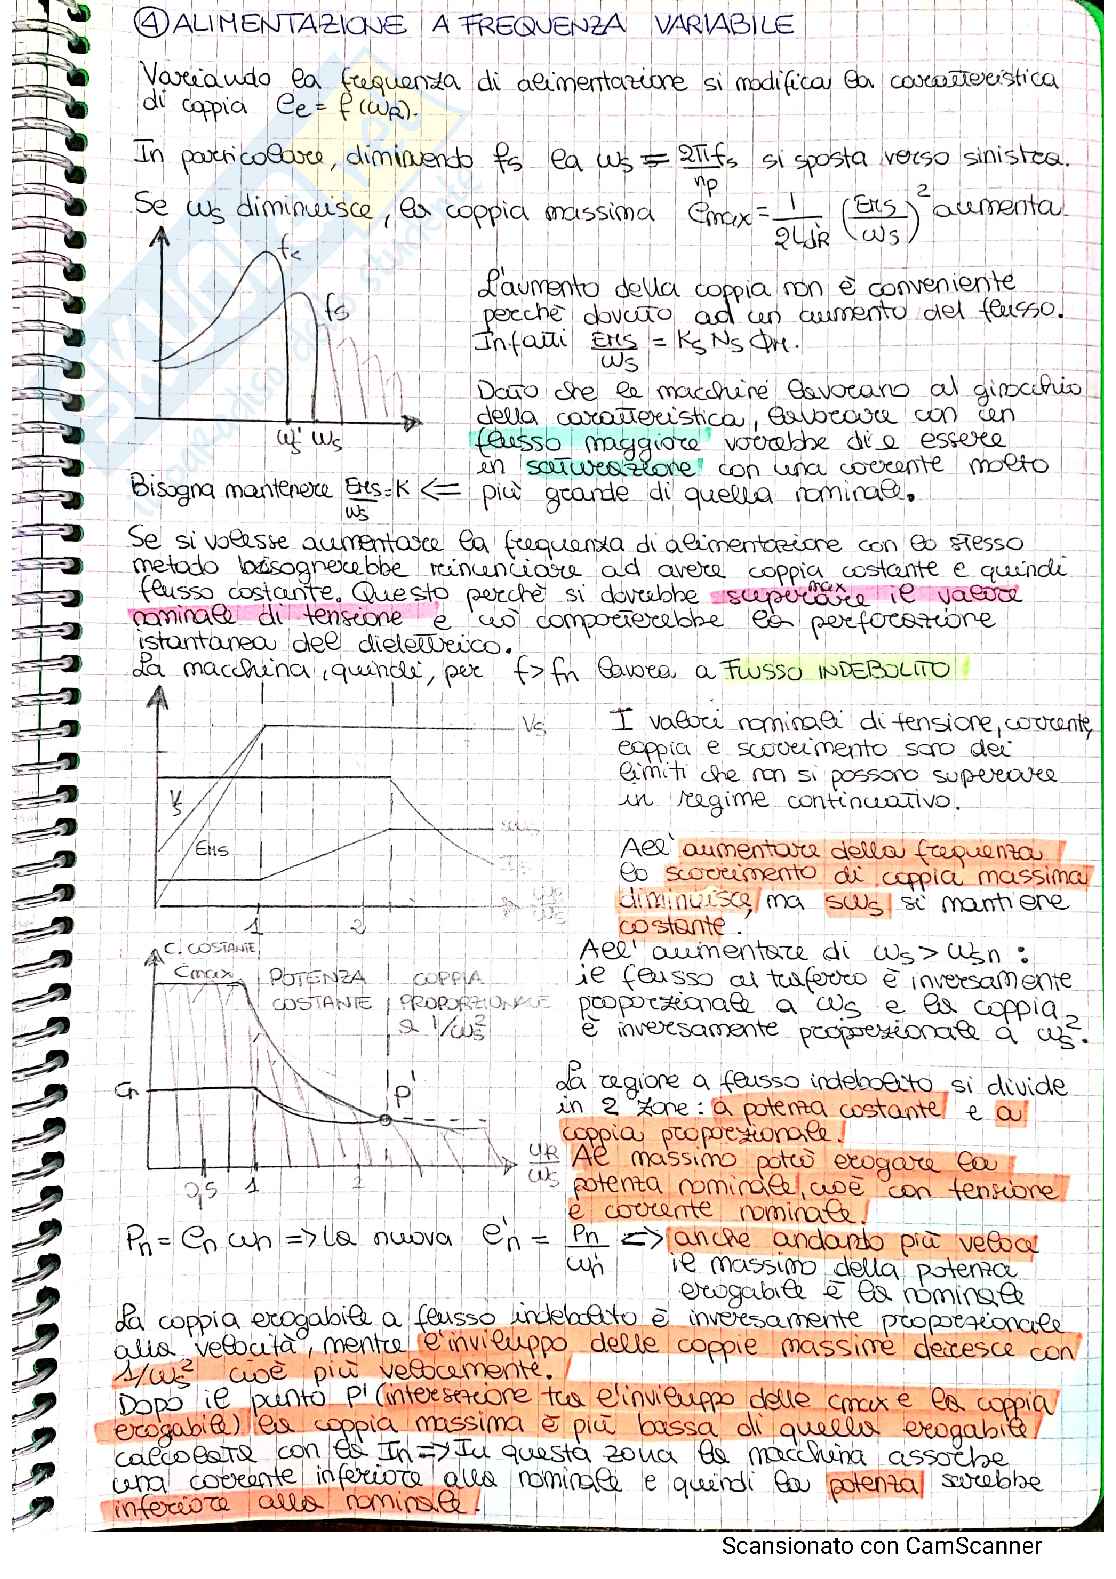 ④ ALIMENTAZIONE A FREQUENZA VARIABILE
Variando la frequenza di alimentazione si modifica la caratteristica
di coppia Ce = f(ωR).
In particolare, diminuendo fs la ωs = 2πfs/np si sposta verso sinistra.
Se ωs diminuisce, la coppia massima Cmax = 1/2LdR' (EMS/ωs)² aumenta.
fs'
fs
ωs' ωs
L'aumento della coppia non è conveniente
perchè dovuto ad un aumento del flusso.
Infatti EMS/ωs = Ks Ns ΦM.
Dato che le macchine lavorano al ginocchio
della caratteristica, lavorare con un
flusso maggiore vorrebbe dire essere
in saturazione con una corrente molto
più grande di quella nominale.
Bisogna mantenere EMS/ωs = K <=
Se si volesse aumentare la frequenza di alimentazione con lo stesso
metodo bisognerebbe rinunciare ad avere coppia costante e quindi
flusso costante. Questo perchè si dovrebbe superare il valore max
nominale di tensione e ciò comporterebbe la perforazione
istantanea del dielettrico.
La macchina, quindi, per f > fn lavora a FLUSSO INDEBOLITO
Vs
Vs
EMS
sωs
1 2
I valori nominali di tensione, corrente,
coppia e scorrimento sono dei
limiti che non si possono superare
in regime continuativo.
All'aumentare della frequenza
lo scorrimento di coppia massima
diminuisce, ma sωs si mantiene
costante.
C. COSTANTE
Cmax
POTENZA COSTANTE
COPPIA PROPORZIONALE a 1/ωs²
Cn
P'
0,5 1 2
ωR/ωs
All'aumentare di ωs > ωsn :
il flusso al traferro è inversamente
proporzionale a ωs e la coppia
è inversamente proporzionale a ωs².
La regione a flusso indebolito si divide
in 2 zone: a potenza costante e a
coppia proporzionale.
Al massimo potrò erogare la
potenza nominale, cioè con tensione
e corrente nominale.
Pn = Cn ωn => la nuova Cn' = Pn/ωn' <=> anche andando più veloce
il massimo della potenza
erogabile è la nominale
La coppia erogabile a flusso indebolito è inversamente proporzionale
alla velocità, mentre l'inviluppo delle coppie massime decresce con
1/ωs² cioè più velocemente.
Dopo il punto P' (intersezione tra l'inviluppo delle cmax e la coppia
erogabile) la coppia massima è più bassa di quella erogabile
calcolata con la In => In questa zona la macchina assorbe
una corrente inferiore alla nominale e quindi la potenza sarebbe
inferiore alla nominale.
Scansionato con CamScanner